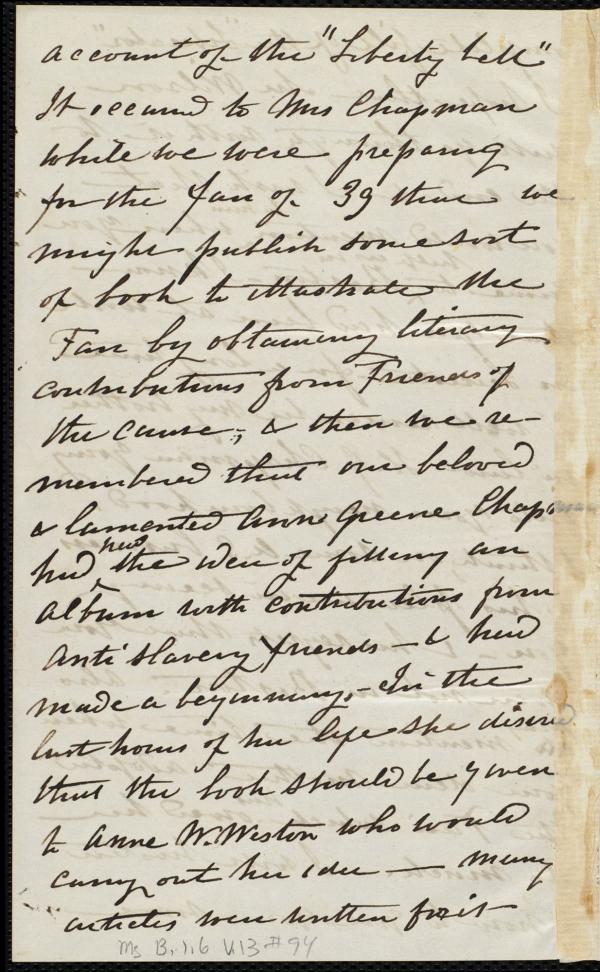 account of the "Liberty bell"
It occurred to Mrs Chapman
while we were preparing
for the fair of 39 that we
might publish some sort
of book to illustrate the
Fair by obtaining literary
contributions from Friends of
the cause, & then we re-
membered that our beloved
& lamented Ann Greene Chap
had had the idea of filling an
album with contributions from
Anti Slavery friends — & had
made a beginning, - In the
last hours of her life she desired
that the book should be given
to Anne W. Weston who would
carry out her idea — many
articles were written for it
Ms B.1.6 V.13 #94